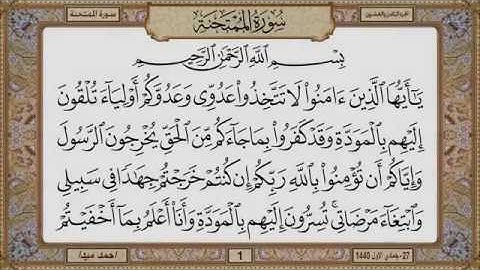 سورة الممتحنة
سُورَةُ المُمْتَحَنَةِ
الجزء الثامن والعشرون
بِسْمِ اللَّهِ الرَّحْمَٰنِ الرَّحِيمِ
يَا أَيُّهَا الَّذِينَ ءَامَنُوا لَا تَتَّخِذُوا عَدُوِّي وَعَدُوَّكُمْ أَوْلِيَاءَ تُلْقُونَ
إِلَيْهِم بِالْمَوَدَّةِ وَقَدْ كَفَرُوا بِمَا جَاءَكُم مِّنَ الْحَقِّ يُخْرِجُونَ الرَّسُولَ
وَإِيَّاكُمْ أَن تُؤْمِنُوا بِاللَّهِ رَبِّكُمْ إِن كُنتُمْ خَرَجْتُمْ جِهَادًا فِي سَبِيلِي
وَابْتِغَاءَ مَرْضَاتِي ۚ تُسِرُّونَ إِلَيْهِم بِالْمَوَدَّةِ وَأَنَا أَعْلَمُ بِمَا أَخْفَيْتُمْ
27- جمادي الأول 1440
1